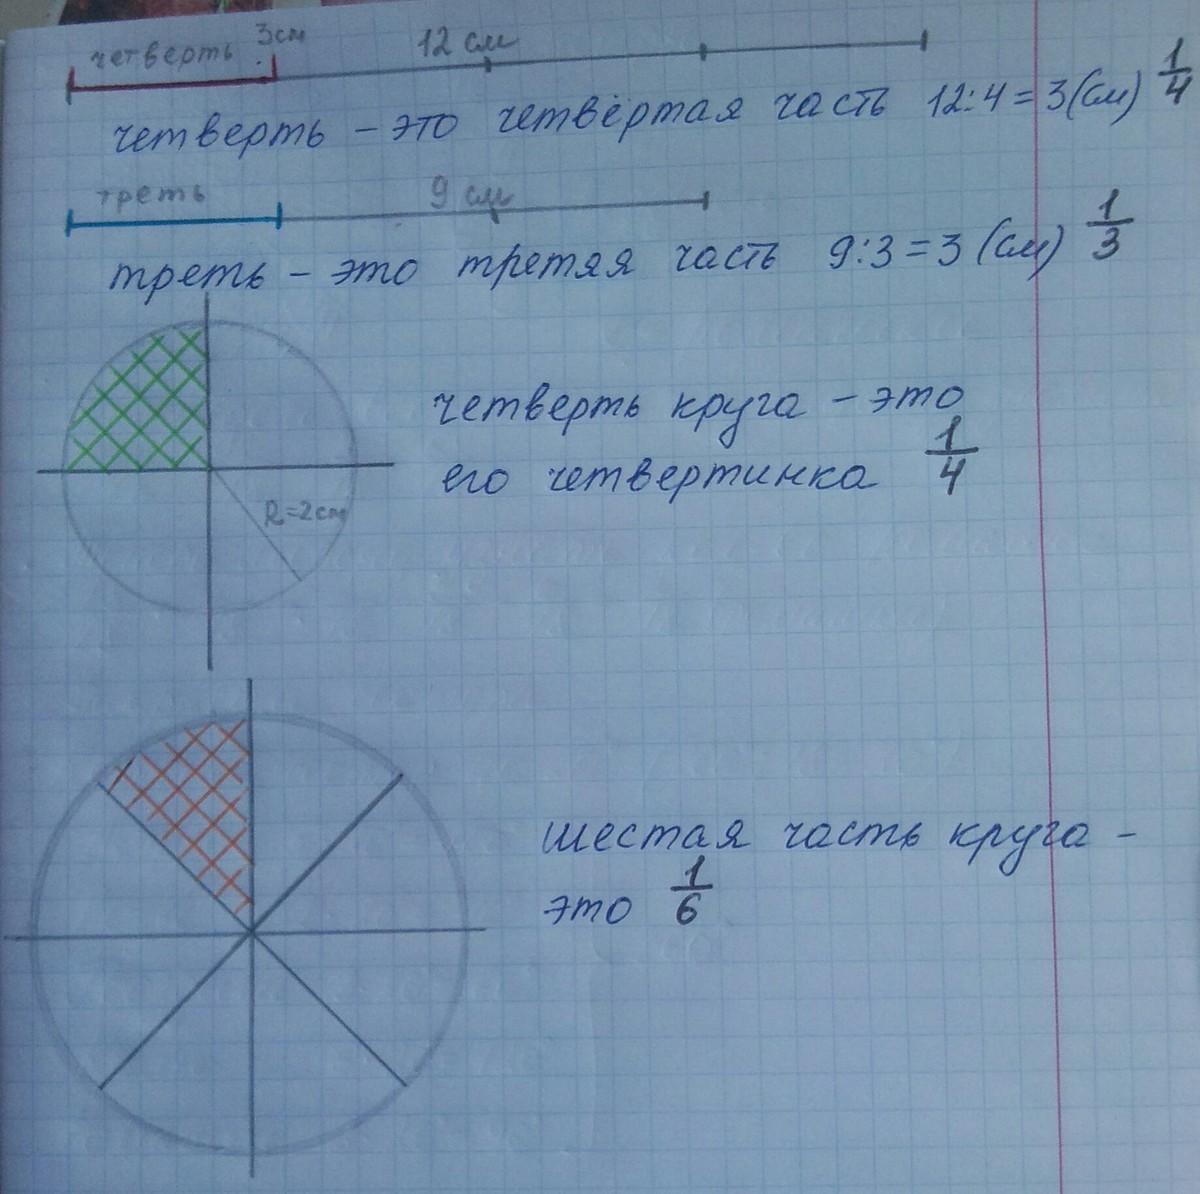 четверть 3см 12 см
четверть – это четвёртая часть 12:4=3(см) 1/4
треть 9 см
треть – это третяя часть 9:3=3 (см) 1/3
четверть круга – это
его четвертинка 1/4
R=2см
шестая часть круга –
это 1/6